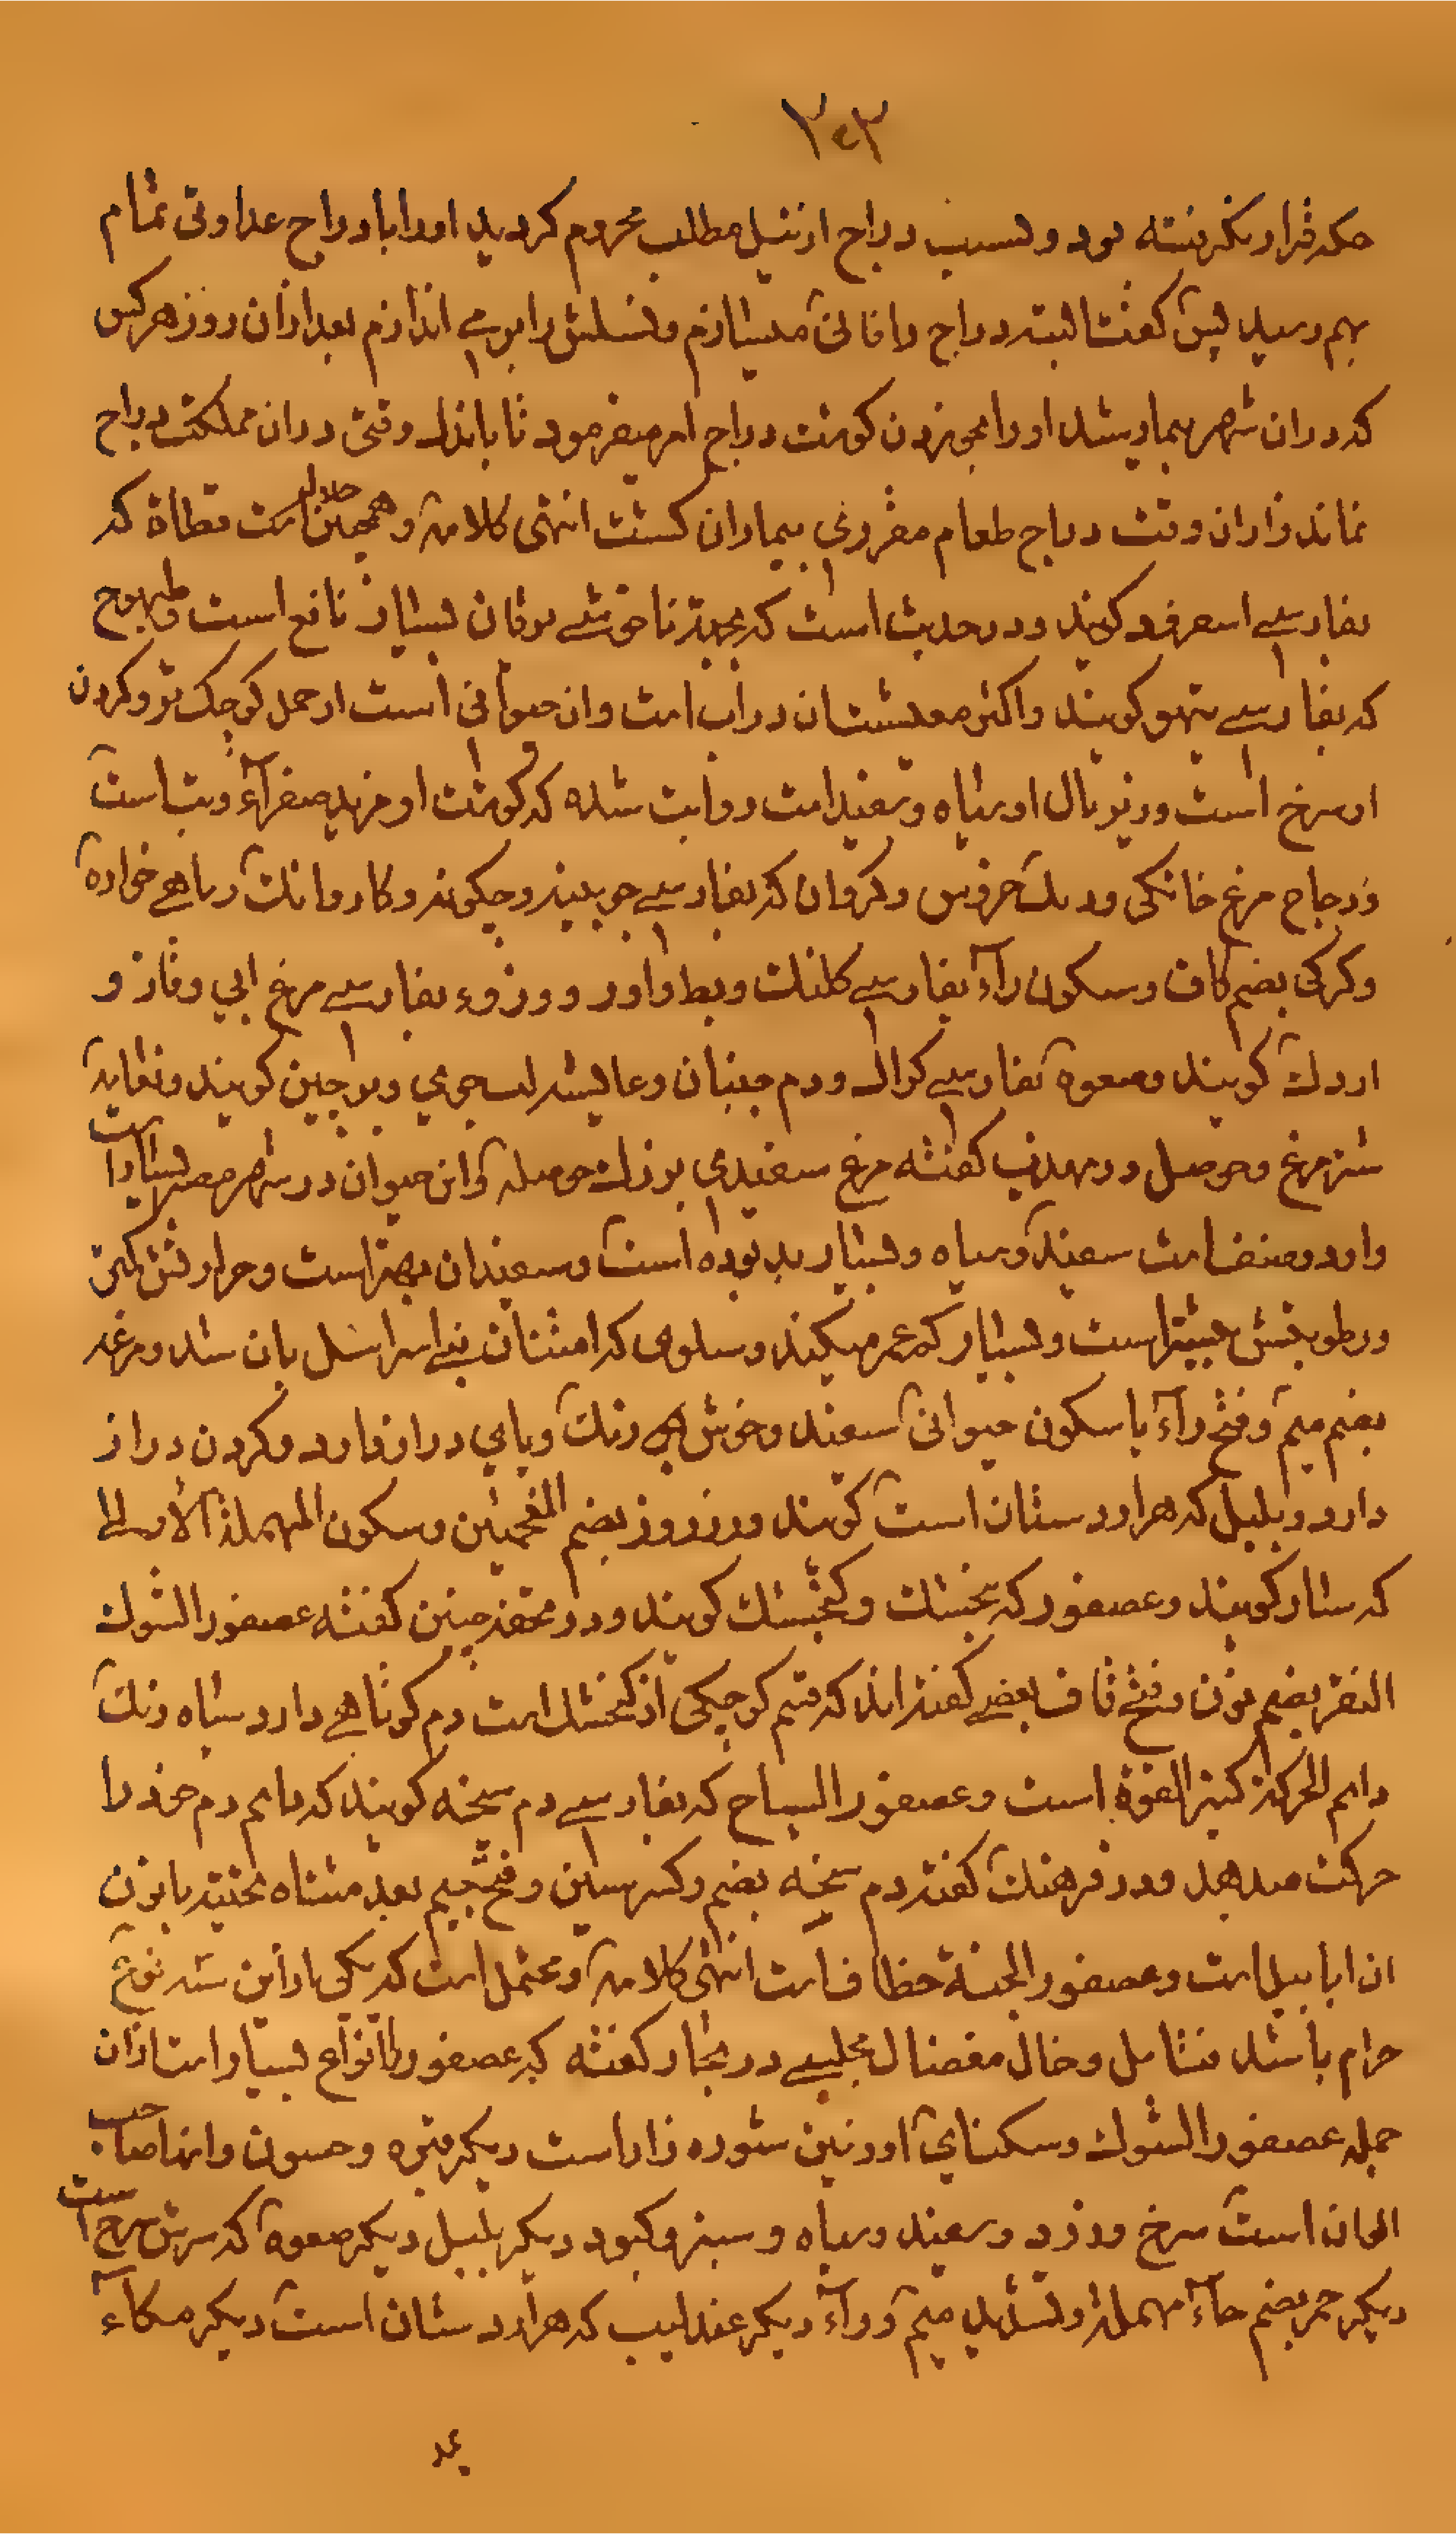 ۳۰۳
حکه قرار نگرفته بود و بسبب دراج از نیل مطلب محروم گردید او را با دراج عداوتی تمام
بهم رسید پس گفت البته دراج را فانی میسازم و نسلش را بر می اندازم بعد از آن روز هر کس
که در آن شهر بیمار میشد او را بخوردن گوشت دراج امر میفرمود تا باندک وقتی در آن مملکت دراج
نماند و از آن وقت دراج طعام مقرری بیماران گشت انتهی کلامه و همچنین حلال است قطاة که
بفارسی اسفرود گویند و در حدیث است که بجهة ناخوشی یرقان بسیار نافع است و طیهوج
که بفارسی تیهو گویند و اکثر معیشتان در آب است و آن حیوانی است از حمل کوچک تر و گردن
او سرخ است و زیر بال او سیاه و سفید است روایت شده که گوشت او مزید صفراء و تب است
و دجاج مرغ خانگی و دیک خروس و کروان که بفارسی چوبینه و چکونه و کاروانک و ماهی خواره
و کرکی بضم کاف و سکون رآء بفارسی کلنک و بط و اوز و وزوء بفارسی مرغ ابی و قاز و
اردک گویند و صعوه بفارسی کراک و دم جنبان و عایشه لب جوی و برجین گویند و نعامه
شتر مرغ و حوصل و در مهذب گفته مرغ سفیدی بزرک حوصله و این حیوان در شهر مصر بسیار است
و ا و دو صنف است سفید و سیاه و بسیار بد بوده است و سفیدان بهتر است و حرارتش کمتر
و رطوبتش بیشتر است و بسیار کم عمر میکند و سلوی که امتنان بنی اسرائیل بان شد و مرغه
بضم میم و فتح رآء با سکون حیوانی سفید و خوش رنک و پای دراز دارد و گردن دراز
دارد و بلبل که هزار دستان است گویند و زرزور بضم المعجمتین و سکون المهملة الأولی
که سار گویند و عصفور که بنجشک و گنجشک گویند و در تحفه چنین گفته عصفور الشوک
النقر بضم نون و فتح قاف بعضی گفته اند که قسم کوچکی از گنجشک است دم کوتاهی دارد سیاه رنک
دایم الحرکة کثیر القوة است و عصفور السیاج که بفارسی دم سیجه گویند که دایم دم خود را
حرکت میدهد و در فرهنک گفته دم سیجه بضم و کسر سین و فتح جیم بعد مثناه تحتیه با نون
ان ابابیل است و عصفور الجنة خطاف است انتهی کلامه و محتمل است که یکی از این سه نوع
حرام باشد فتامل و خال مفضال مجلسی در بحار گفته که عصفور را انواع بسیار است از آن
جمله عصفور الشوک و سکنای او زمین شوره زار است دیگر قبره و حسون و انها صاحب
الوان است سرخ و زرد و سفید و سیاه و سبز و کبود دیگر بلبل دیگر صعوه که سرش سرخ است
دیگر حمر بضم حآء مهمله و تشدید میم و رآء دیگر عندلیب که هزار دستان است دیگر مکاء